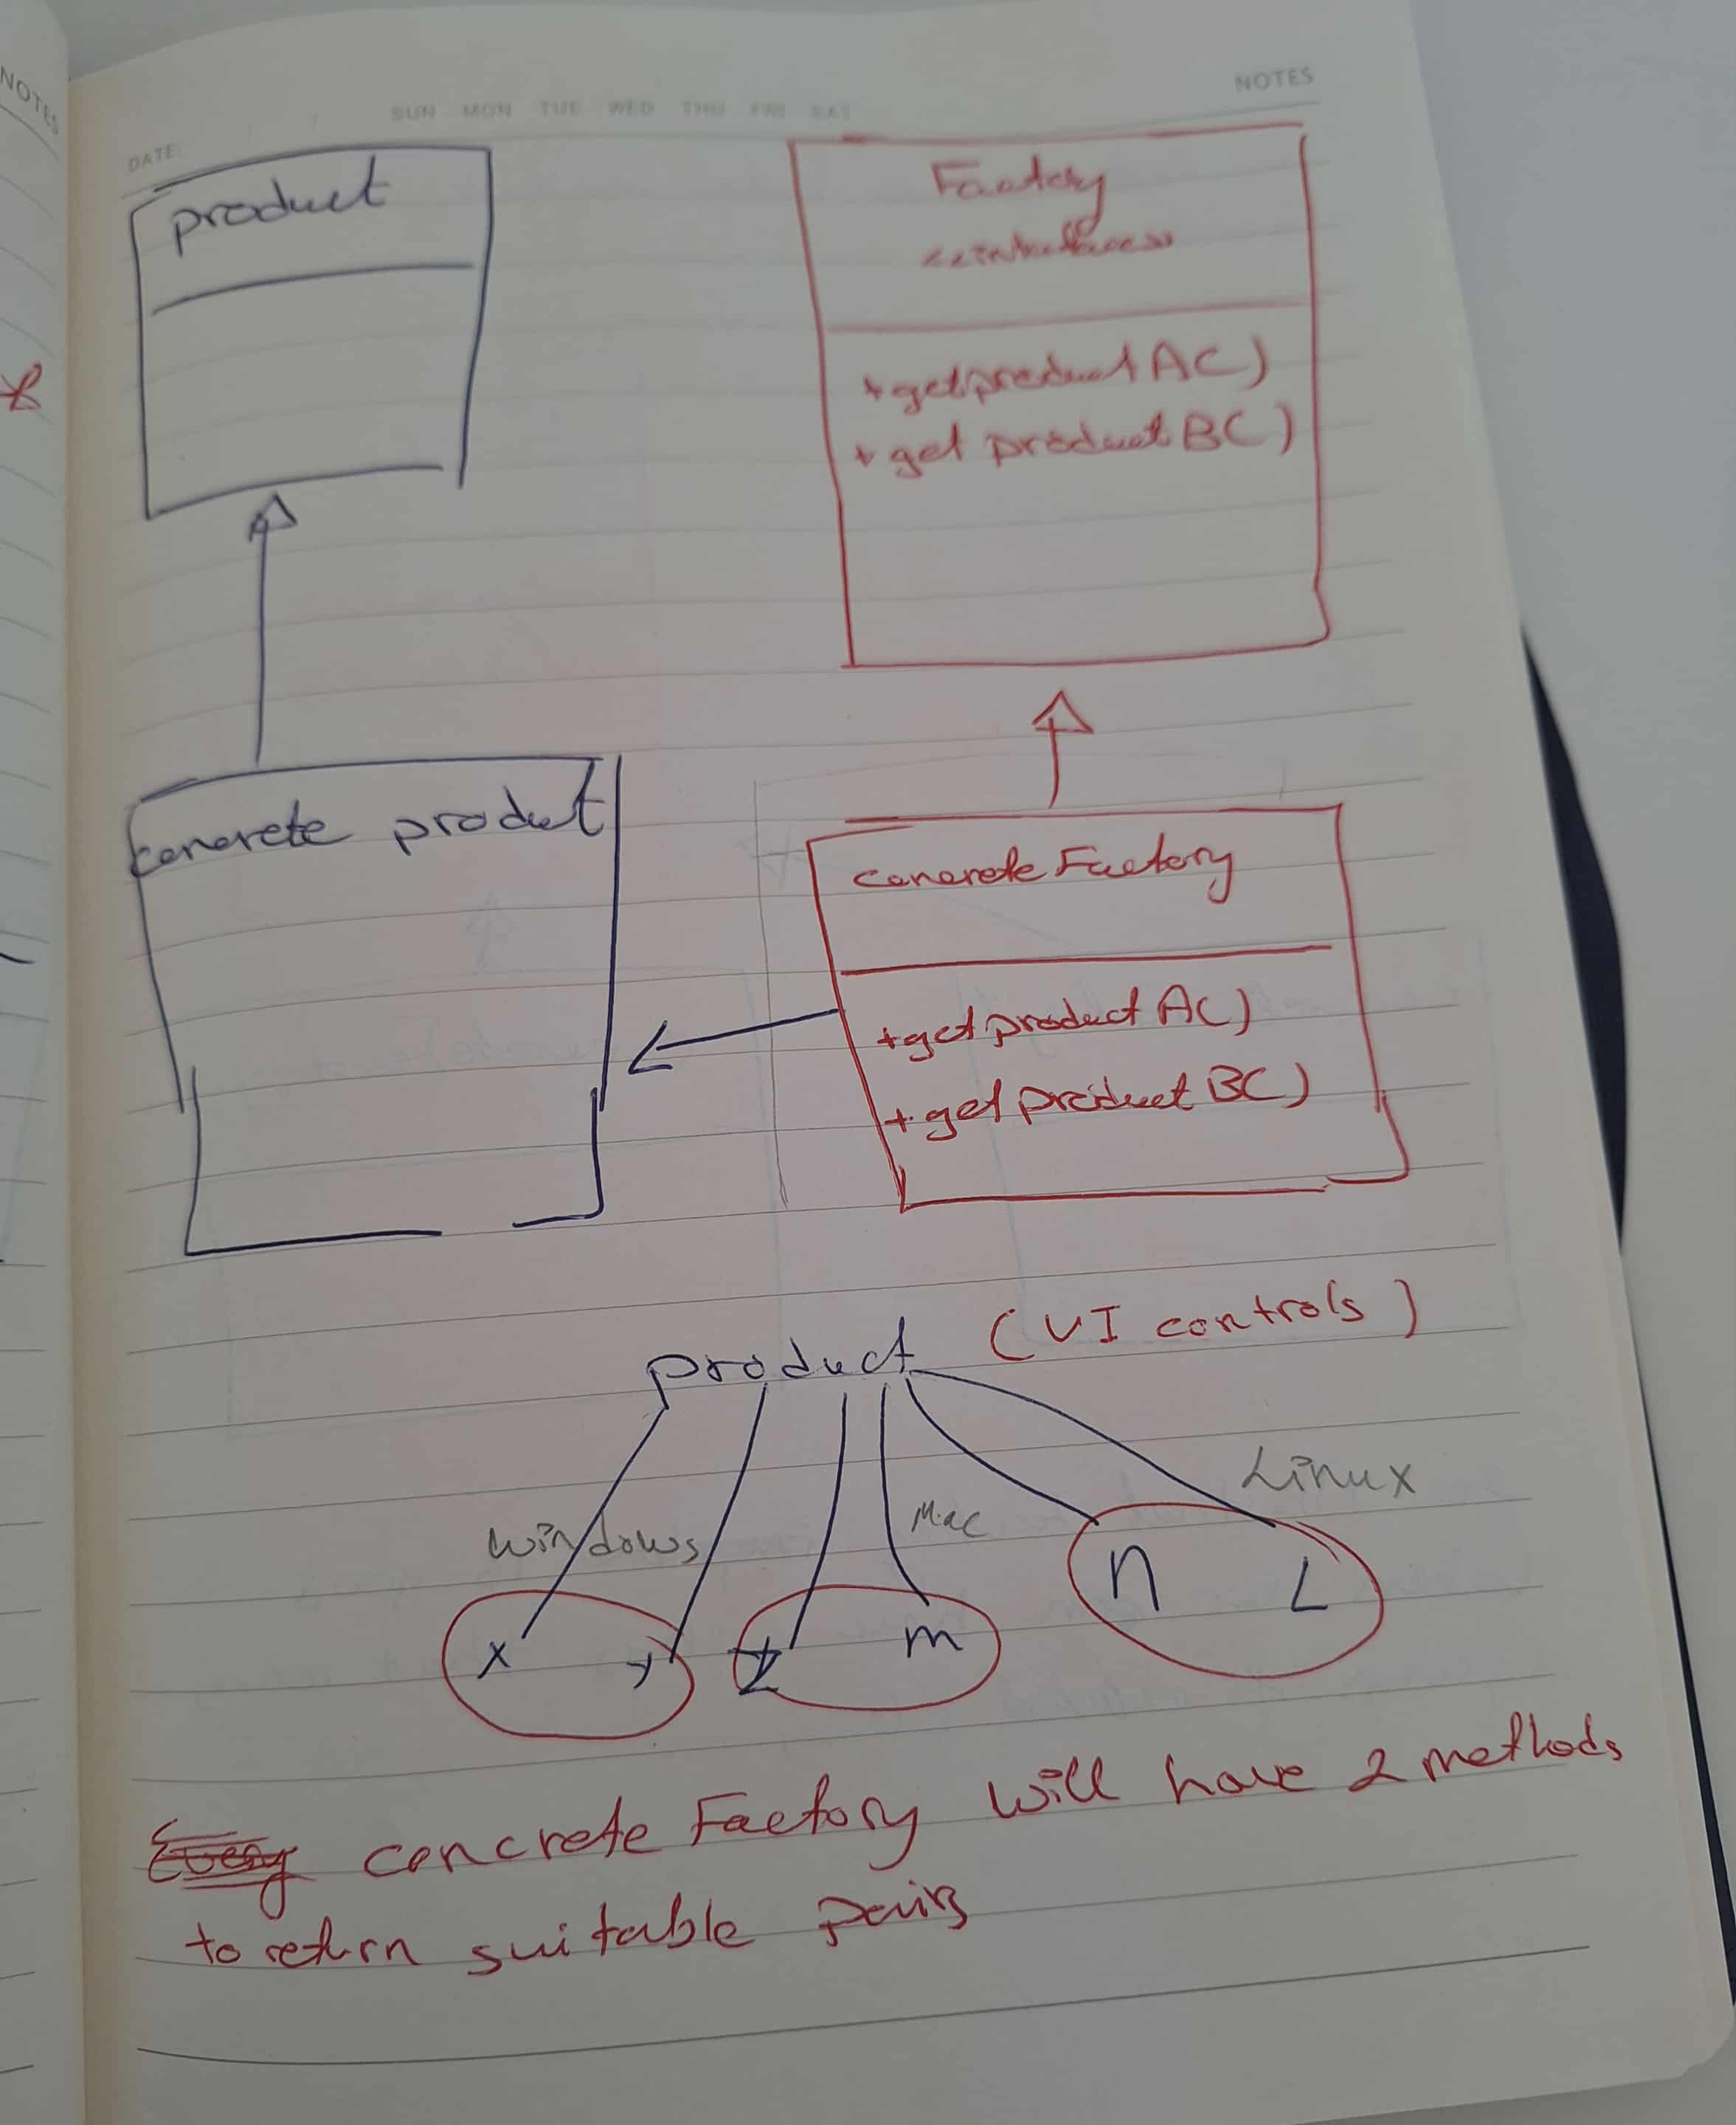 NOTES
NOTES
SUN MON TUE WED THU FRI SAT
DATE:
product
Factory
<<interface>>
+getproductA()
+get productB()
concrete product
concrete Factory
+getproduct A()
+get product B()
product (UI controls)
Linux
windows
Mac
n L
x y z m
Every concrete Factory will have 2 methods
to return suitable pairs